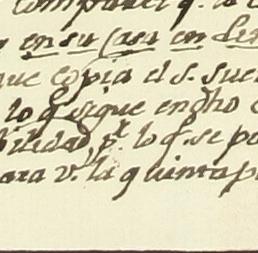 comprovar q. la
en su Casa en
que copia el s.
lo q sigue en dho
bilidad, pr. lo q. se po
para v. la quinta